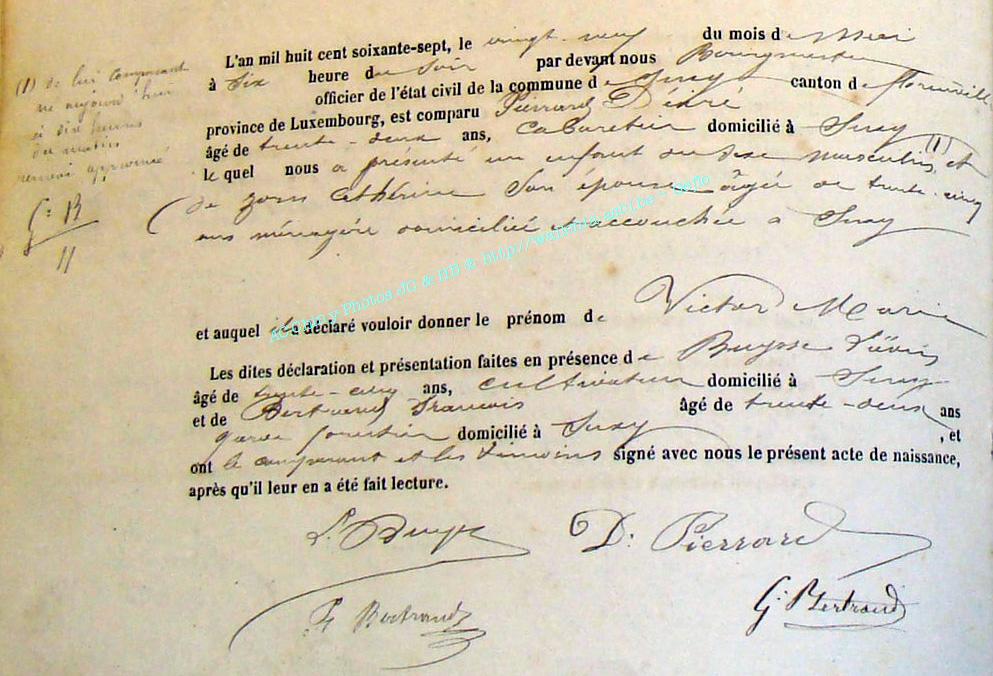 L'an mil huit cent soixante-sept, le vingt-neuf du mois de Mai
à six heure du soir par devant nous Bourgmestre
officier de l'état civil de la commune de Suxy canton de Florenville
province de Luxembourg, est comparu Pierrard Désiré
âgé de trente-deux ans, cabaretier domicilié à Suxy
le quel nous a présenté un enfant du sexe masculin, né (1)
de Catherine son épouse âgée de trente-cinq
ans ménagère domiciliée et accouchée à Suxy
(1) de lui comparant
ce aujourd'hui
à dix heures
du matin
renvoi approuvé
G. B
et auquel il a déclaré vouloir donner le prénom de Victor Marie
Les dites déclaration et présentation faites en présence de
âgé de trente-cinq ans, cultivateur domicilié à Suxy
et de Bertrand François âgé de trente-deux ans
garde forestier domicilié à Suxy , et
ont le comparant et les témoins signé avec nous le présent acte de naissance,
après qu'il leur en a été fait lecture.
D. Pierrard
F. Bertrand
G. Bertrand